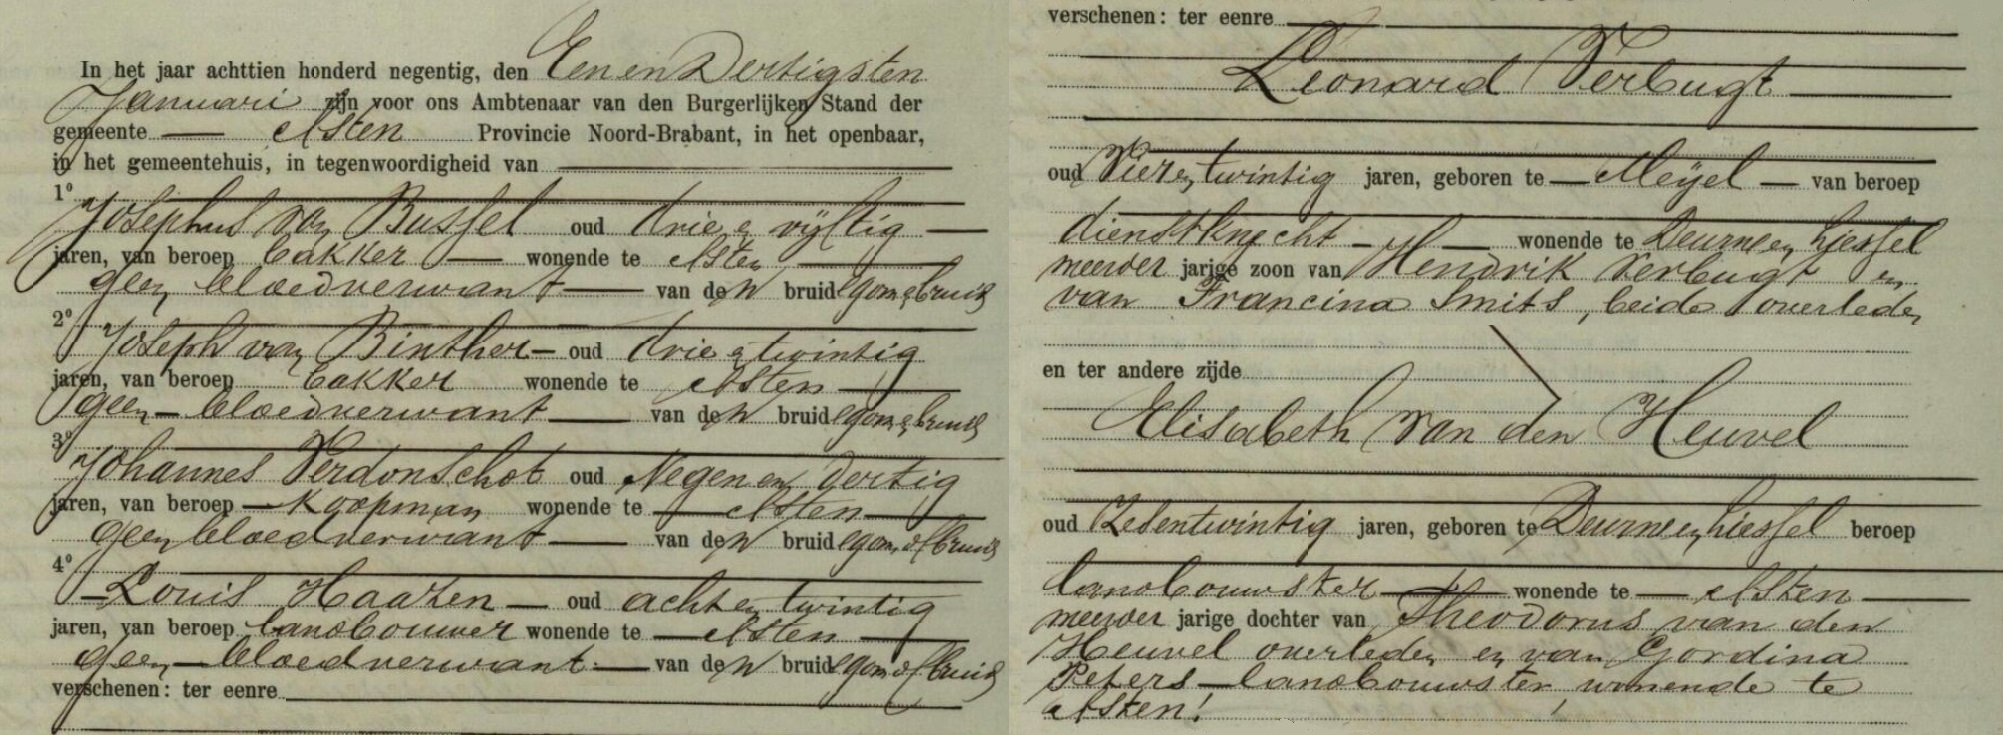 In het jaar achttien honderd negentig, den Een en Dertigsten
Januari zijn voor ons Ambtenaar van den Burgerlijken Stand der
gemeente Asten Provincie Noord-Brabant, in het openbaar,
in het gemeentehuis, in tegenwoordigheid van
1°
Josephus van Bussel oud drie en vijftig
jaren, van beroep bakker wonende te Asten
geen bloedverwant van den bruidegom en bruid
2°
Joseph van Binther oud drie en twintig
jaren, van beroep bakker wonende te Asten
geen bloedverwant van den bruidegom en bruid
3°
Johannes Verdonschot oud Negen en dertig
jaren, van beroep Koopman wonende te Asten
geen bloedverwant van den bruidegom of bruid
4°
Louis Haazen oud acht en twintig
jaren, van beroep landbouwer wonende te Asten
geen bloedverwant van den bruidegom of bruid
verschenen: ter eenre
verschenen: ter eenre
Leonard Verbugt
oud Vier en twintig jaren, geboren te Meijel van beroep
dienstknecht wonende te Deurne en Liessel
meerder jarige zoon van Hendrik Verbugt en
van Francina Smits, beide overleden
en ter andere zijde
Elisabeth van den Heuvel
oud Zesentwintig jaren, geboren te Deurne en Liessel beroep
landbouwster wonende te Asten
meerder jarige dochter van Theodorus van den
Heuvel overleden en van Gordina
Peters landbouwster, wonende te
Asten!